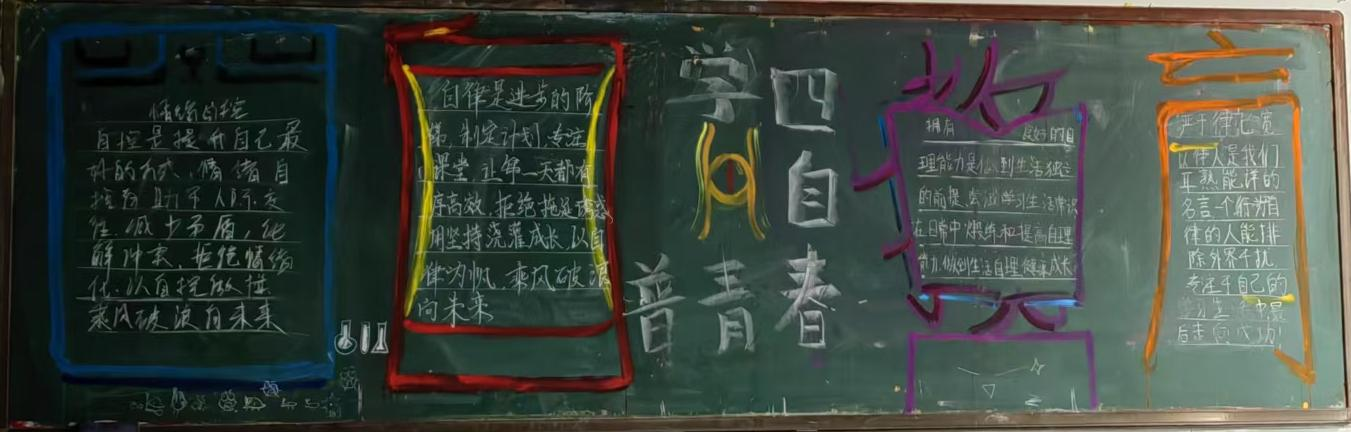 情绪自控
自控是提升自己最
好的方式，情绪自
控有助于人际交
往，减少矛盾，化
解冲突，拒绝情绪
化，以自控敬
乘风破浪向未来
自律是进步的阶
梯，制定计划，专注
课堂，让每一天都有
序高效，拒绝拖延诱惑
用坚持浇灌成长，以自
律为帆，乘风破浪
向未来
学四
自
普青春
拥有 良好的自
理能力是做到生活独立
的前提，尝试学习生活常识
在日常中锻炼和提高自理
能力，做到生活自理健康成长
严于律己宽
以律人是我们
耳熟能详的
名言一个行为自
律的人能排
除外界干扰
专注于自己的
学习生 中最
后走向成功！